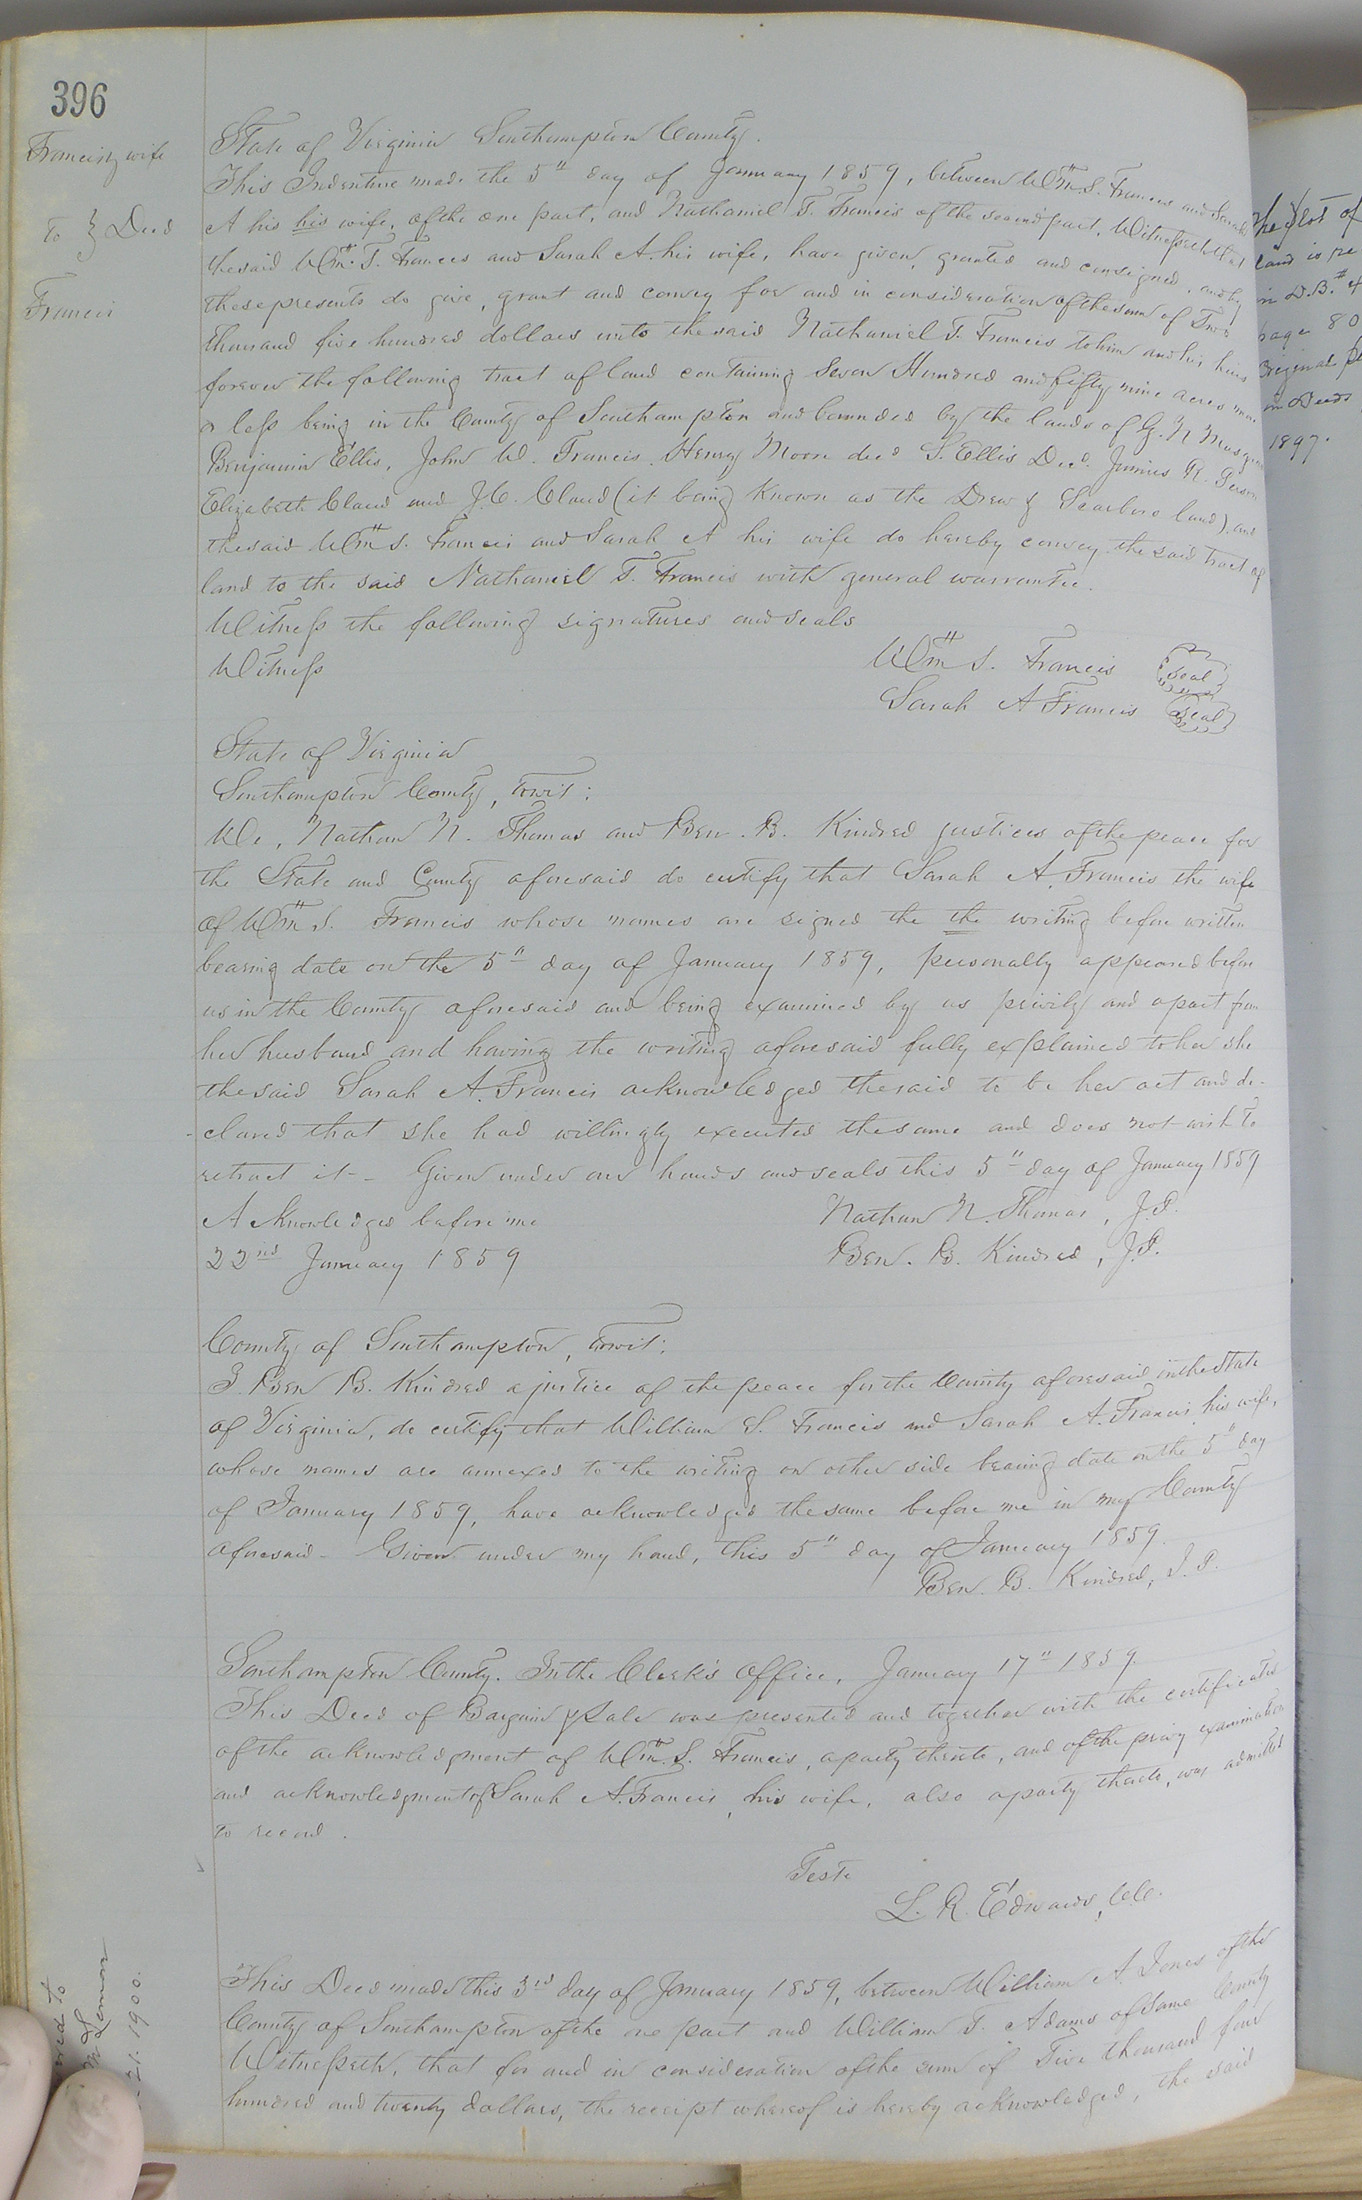 396
Francis & wife
to } Deed
Francis
State of Virginia Southampton County.
This Indenture made the 5" day of January 1859, between Wm. S. Francis and Sarah
A his his wife, of the one part, and Nathaniel T. Francis of the second part, Witnesseth that
the said Wm. S. Frances and Sarah A. his wife, have given, granted and consigned, and by
these presents do give, grant and convey for and in consideration of the sum of Two
thousand five hundred dollars unto the said Nathaniel T. Francis to him and his heirs
forever the following tract of land containing Seven Hundred and fifty nine acres more
or less being in the County of Southampton and bounded by the lands of G. N.
Benjamin Ellis, John W. Francis, Henry Moore decd S. Ellis Decd. Junius R.
Elizabeth Claud and J. C. Claud (it being known as the Drew & Scarboro land), and
the said Wm S. Francis and Sarah A his wife do hereby convey the said tract of
land to the said Nathaniel T. Francis with general warrantee.
Witness the following signatures and seals
Witness
Wm S. Francis seal
Sarah A Francis seal
State of Virginia
Southampton County, towit:
We, Nathan N. Thomas and Ben. B. Kindred justices of the peace for
the State and County aforesaid do certify that Sarah A. Francis the wife
of Wm S. Francis whose names are signed the the writing before written
bearing date on the 5" day of January 1859, personally appeared before
us in the County aforesaid and being examined by us privily and apart from
her husband and having the writing aforesaid fully explained to her she
the said Sarah A. Francis acknowledged the said to be her act and de-
-clared that she had willingly executed the same and does not wish to
retract it - Given under our hands and seals this 5" day of January 1859
Acknowledged before me
22nd January 1859
Nathan N. Thomas, J.P.
Ben. B. Kindred, J.P.
County of Southampton, towit:
I Ben B. Kindred a justice of the peace for the County aforesaid in the State
of Virginia, do certify that William S. Francis and Sarah A. Francis his wife,
whose names are annexed to the writing on other side bearing date on the 5" day
of January 1859, have acknowledged the same before me in my County
aforesaid - Given under my hand, this 5" day of January 1859.
Ben. B. Kindred, J.P.
Southampton County. In the Clerk's Office, January 17" 1859.
This Deed of Bargain & Sale was presented and together with the certificates
of the acknowledgment of Wm. S. Francis, a party thereto, and of the privy examination
and acknowledgment of Sarah A. Francis, his wife, also a party thereto, was admitted
to record.
Teste
L. R. Edwards, C.C.
This Deed made this 3rd day of January 1859, between William A. Jones of the
County of Southampton of the one part and William T. Adams of same County
Witnesseth, that for and in consideration of the sum of Five thousand four
hundred and twenty dollars, the receipt whereof is hereby acknowledged, the said
1900.
The plot of
land is re
in D.B. #
page 80
original
in Deeds
1897.